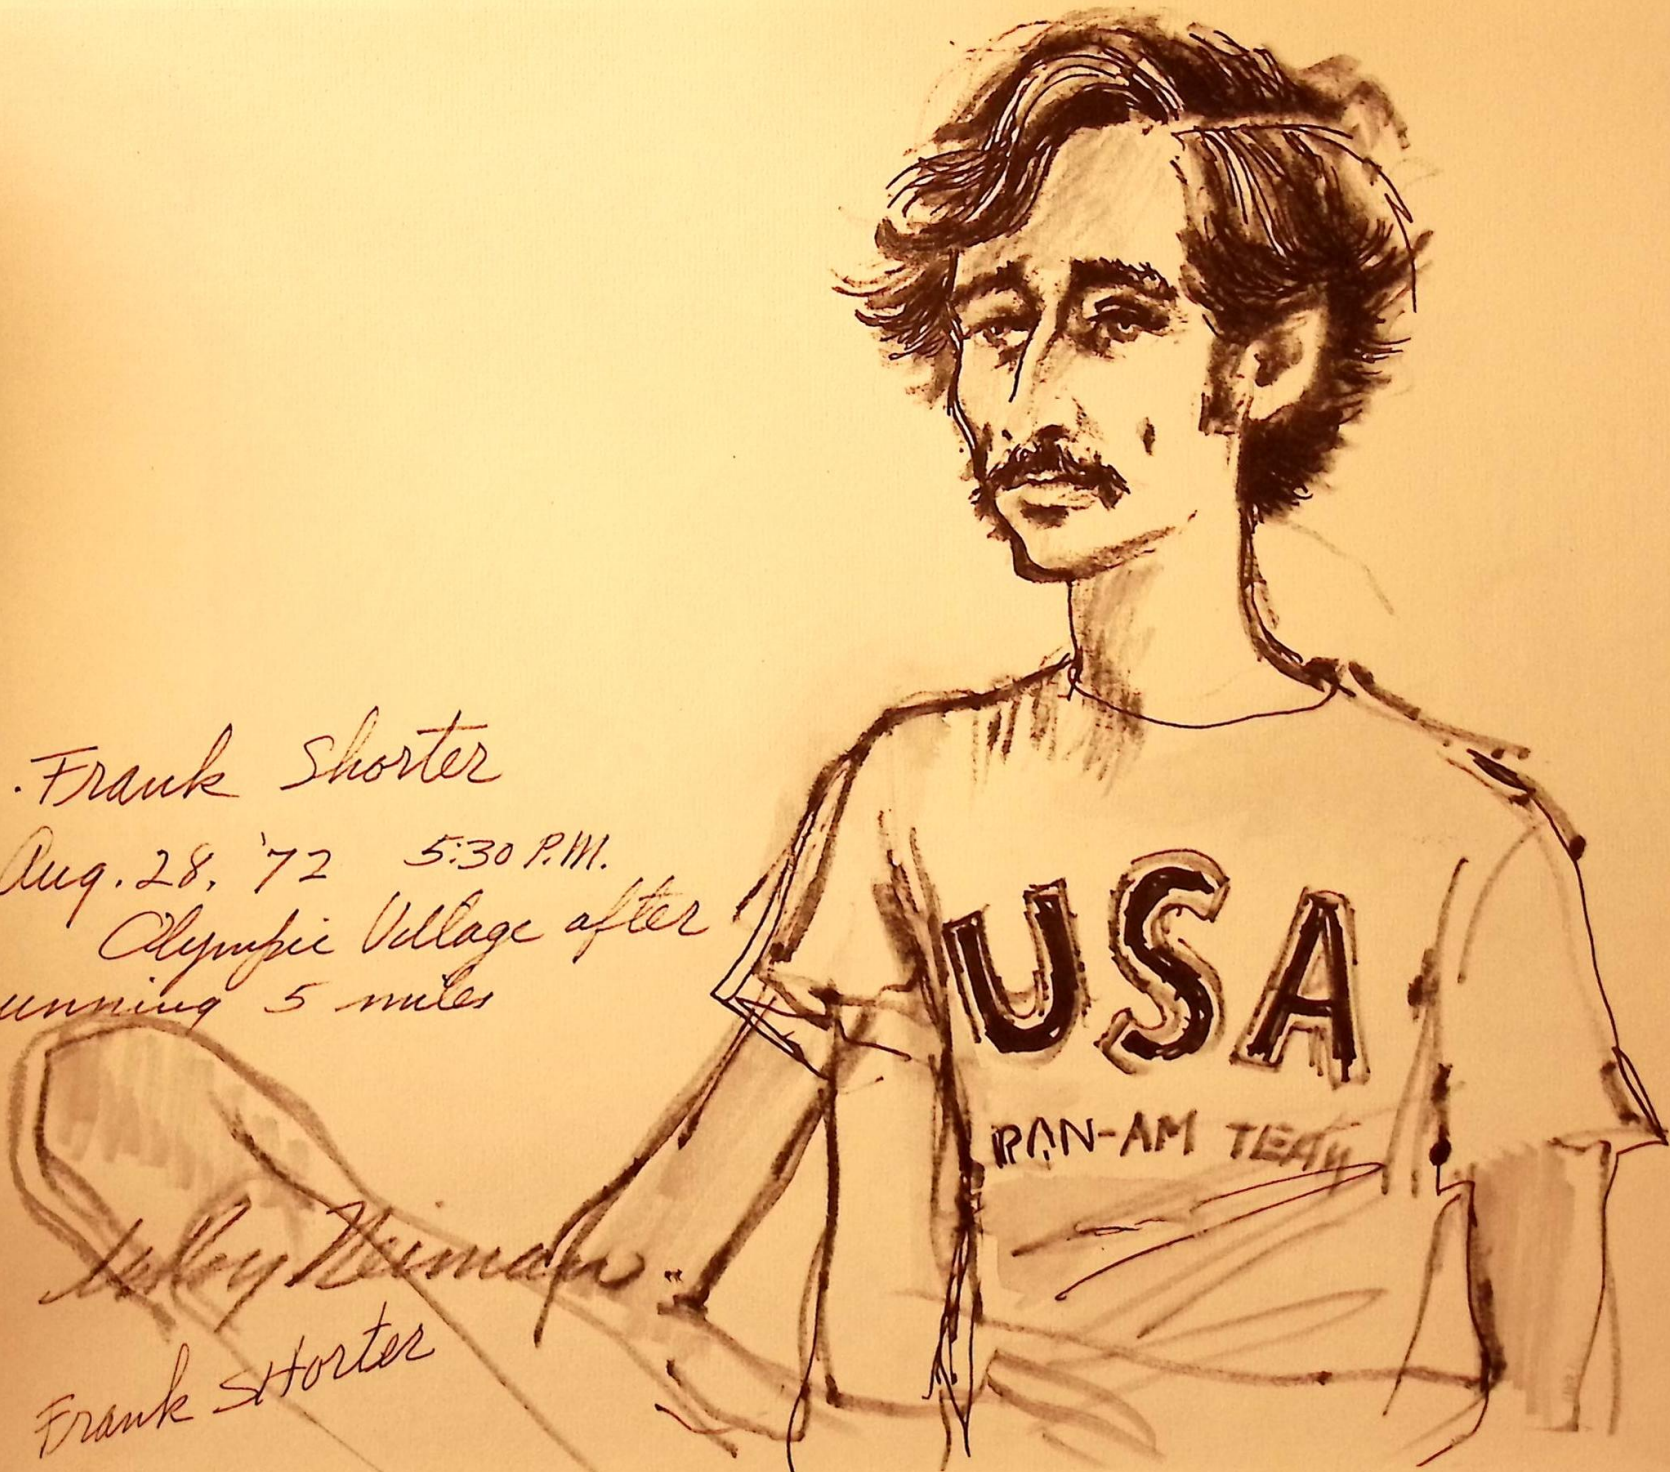 Frank Shorter
Aug. 28, '72 5:30 P.M.
Olympic Village after
unning 5 miles
USA
PAN-AM TEAM
LeRoy Neiman
Frank SHorter